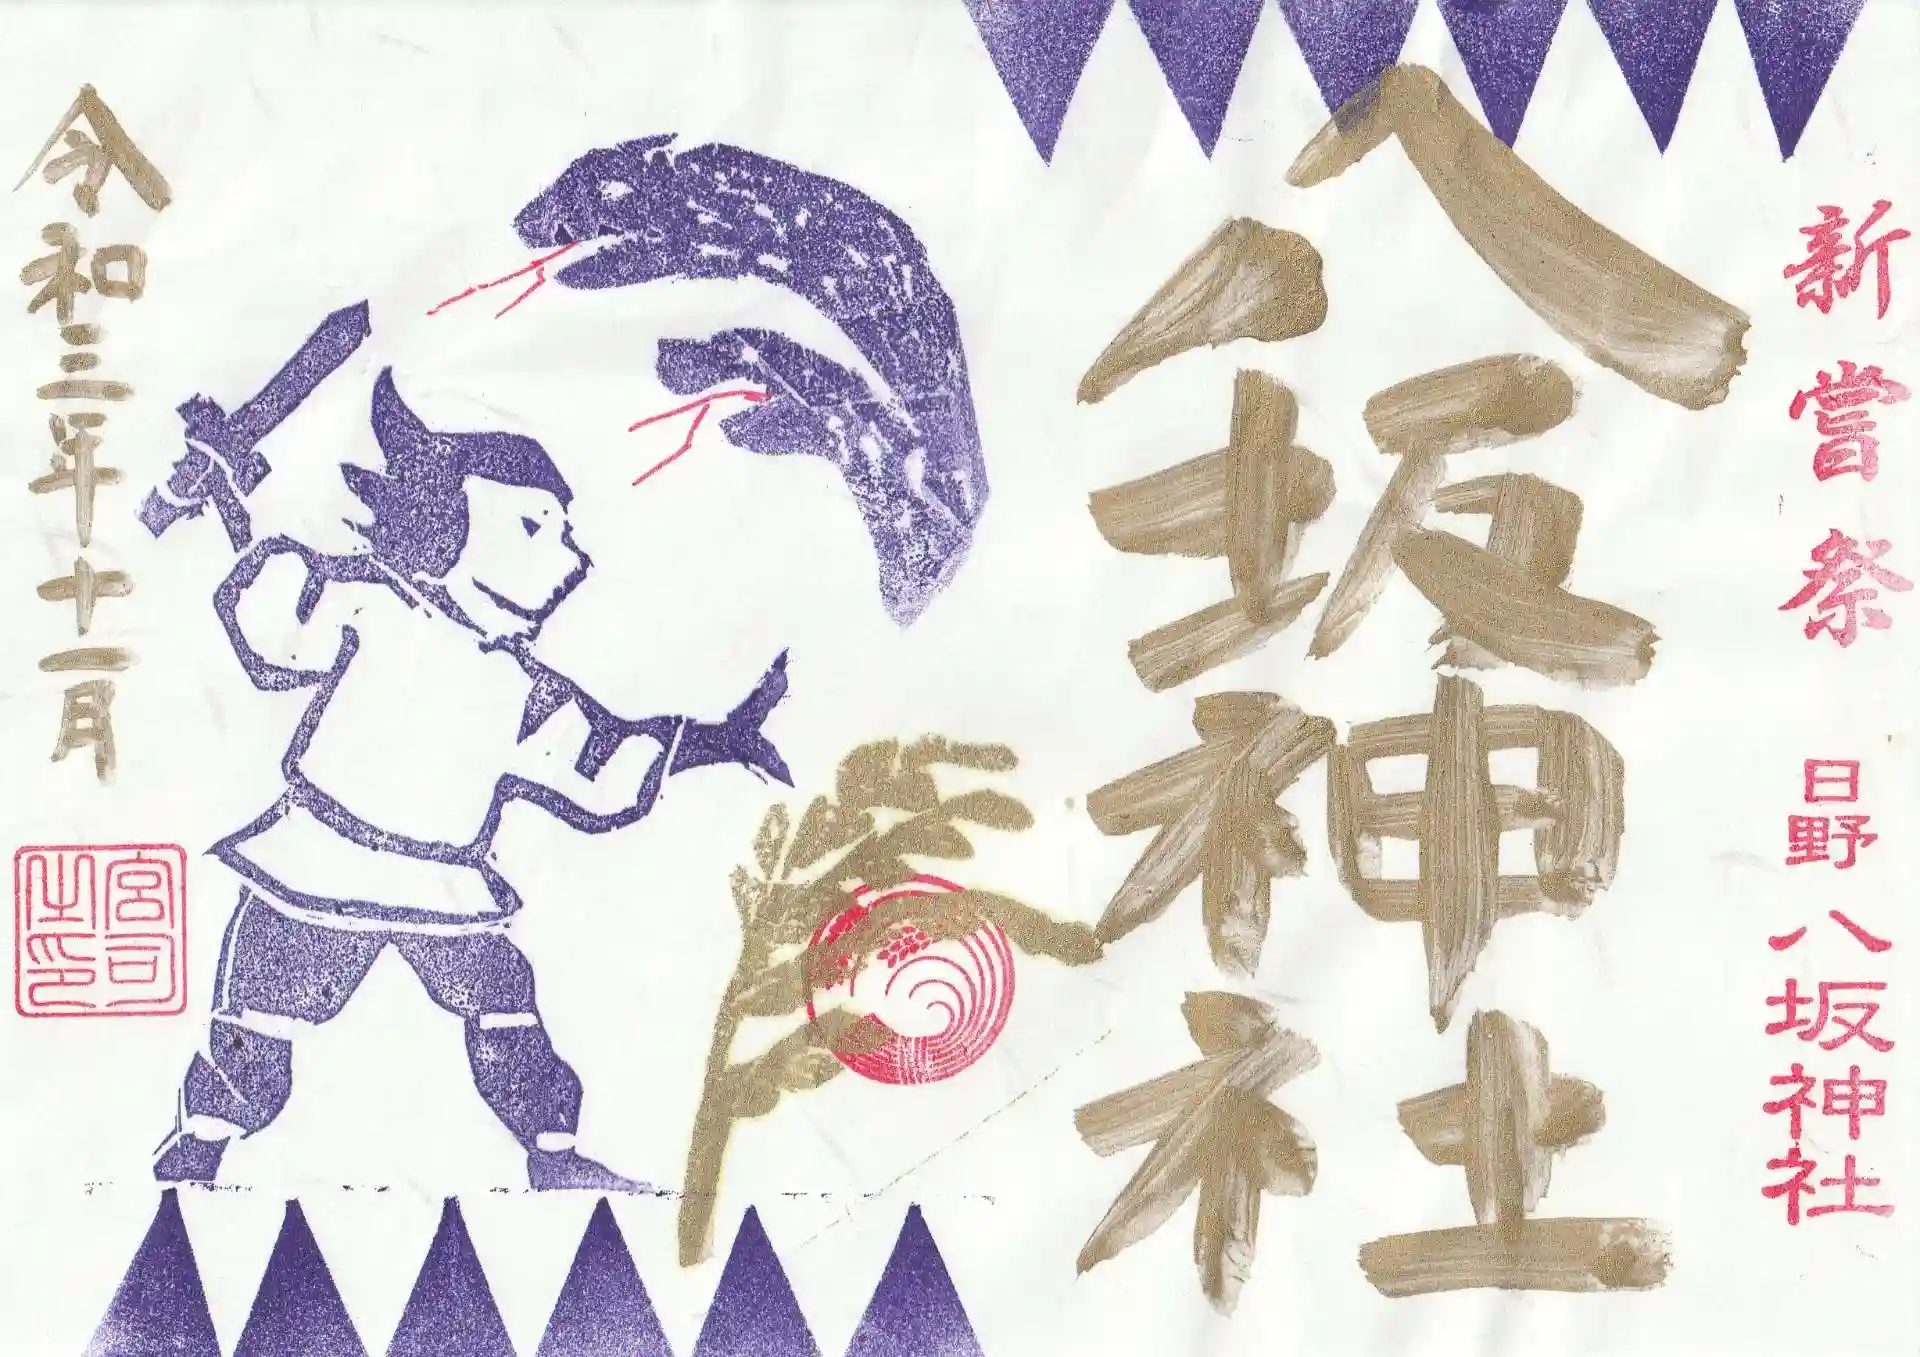 新嘗祭
日野八坂神社
八坂神社
令和三年十一月
宮司之印